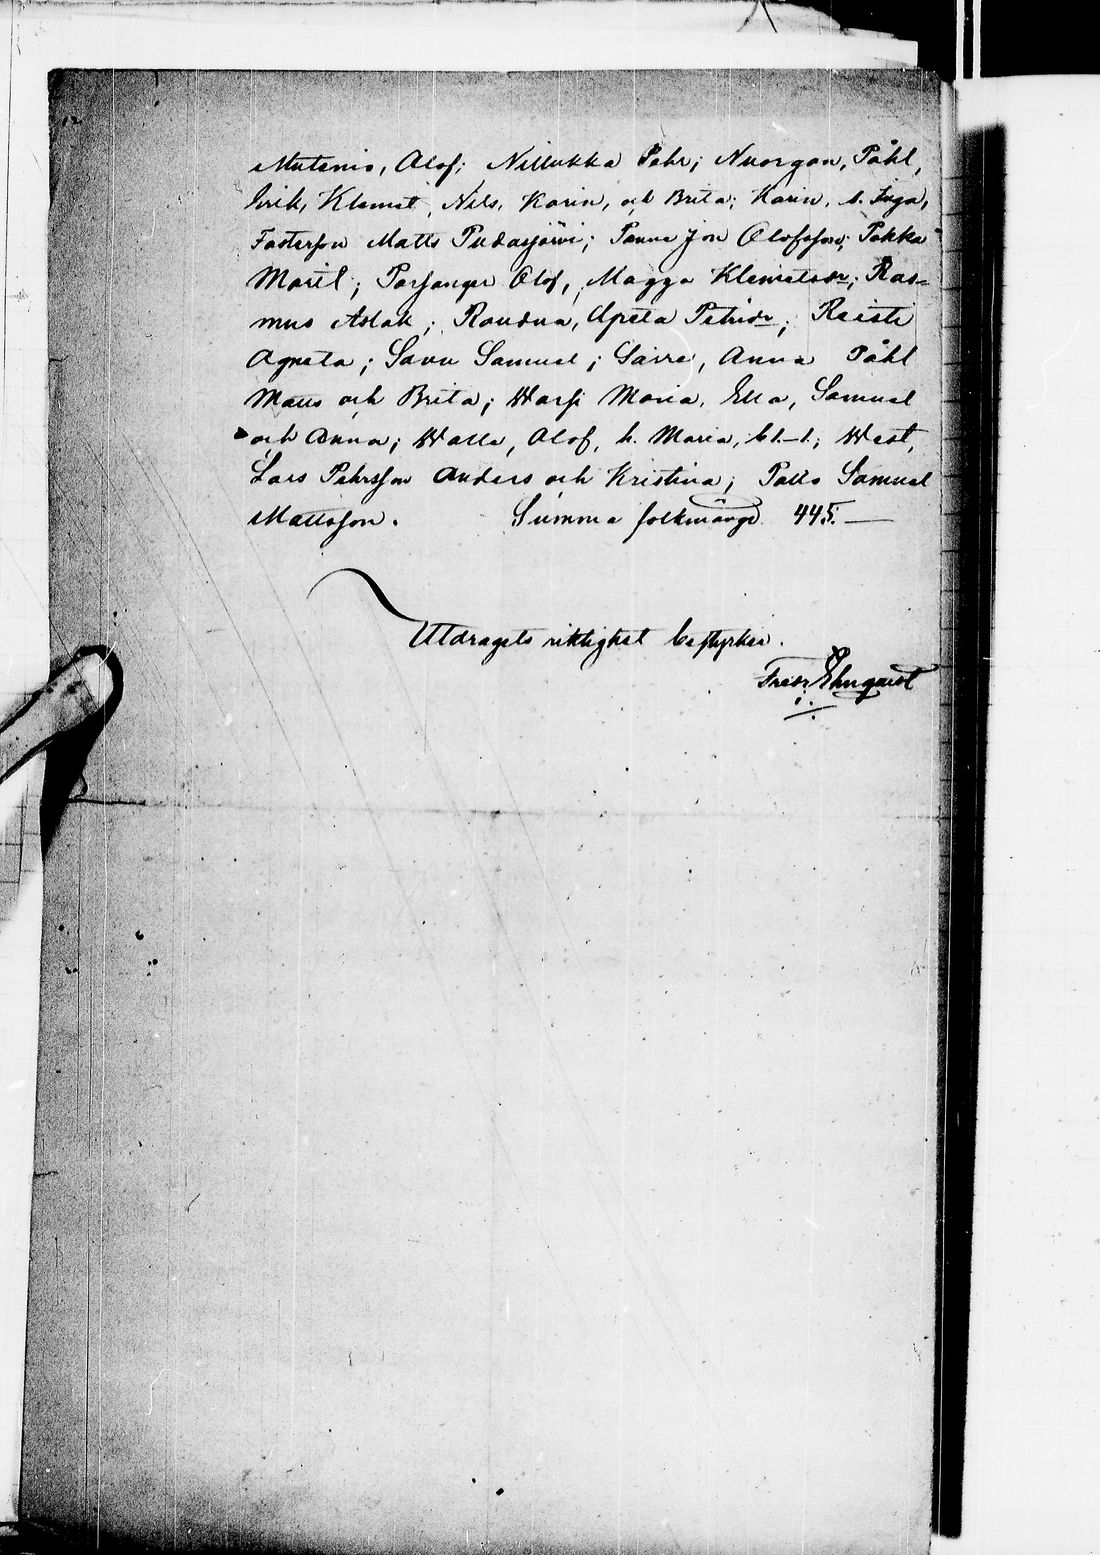 Mutenio, Olof; Nillukka Pehr; Nuorgan, Påhl,
Erik, Klemet, Nils, Karin, och Brita; Karin, d. Inga,
Fosterson Matts Pudasjärvi; Panne Jon Olofsson; Pokka
Marit; Porsanger Olof, Magga Klemetsdr; Ras-
mus Aslak; Raudna, Greta Petridr; Reisti
Agneta; Savu Samuel; Sarre, Anna Påhl
Matts och Brita; Warsi Maria, Ella, Samuel
och Anna; Walle, Olof, h. Maria, b. 1.–1.; West,
Lars Pehrsson Anders och Kristina; Palto Samuel
Mattsson. Summa folkmängd 445.—
Utdragets riktighet bestyrker.
Fredr Ehnquist